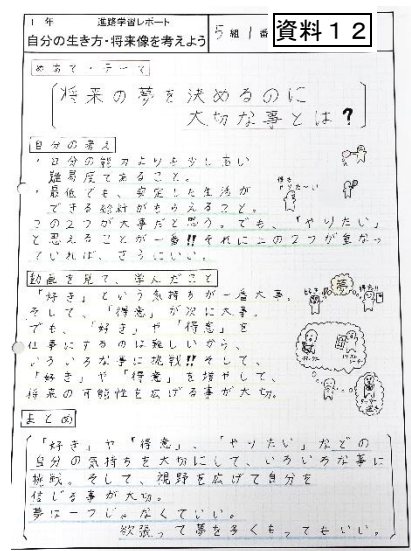 1 年 進路学習レポート
自分の生き方・将来像を考えよう
5組1番
資料12
めあて・テーマ
将来の夢を決めるのに
大切な事とは?
自分の考え
・自分の能力よりも少し高い
難易度であること。
・最低でも、安定した生活が
できる給料がもらえること。
この2つが大事だと思う。でも、「やりたい」
と思えることが一番!!それにこの2つが重なっ
ていれば、さらにいい。
動画を見て、学んだこと
「好き」という気持ちが一番大事。
そして、「得意」が次に大事。
でも、「好き」や「得意」を
仕事にするのは難しいから、
いろいろな事に挑戦!!そして、
「好き」や「得意」を増やして、
将来の可能性を広げる事が大切。
夢
まとめ
「好き」や「得意」、「やりたい」などの
自分の気持ちを大切にして、いろいろな事に
挑戦。そして、視野を広げて自分を
信じる事が大切。
夢は一つじゃなくていい。
欲張って夢を多くもってもいい。